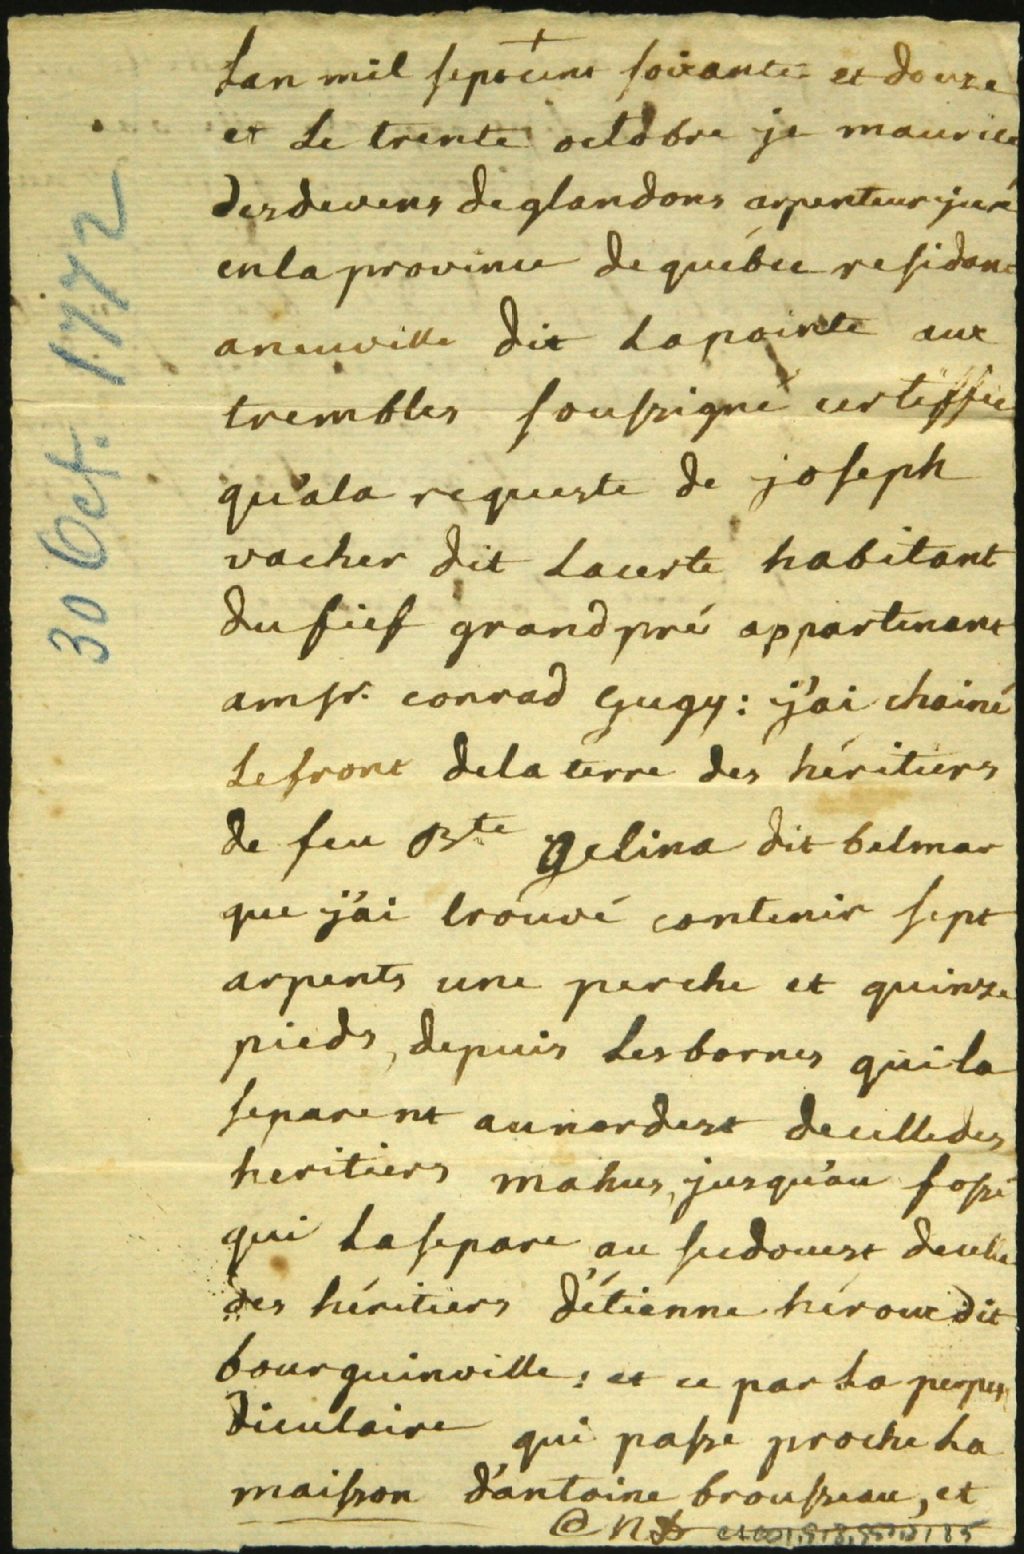 +
Lan mil sept cent soixante et douze
et le trente octobre je maurice
desdevens deglandons arpenteur juré
en la province de québec residant
aneuville dit Lapointe aux
trembles soussigné certiffie
qu'ala requeste de joseph
vacher dit Lacerte habitant
du fief grandpré appartenant
amsr. conrad Gugy: j'ai chainé
Le front dela terre des héritiers
de feu Bte Gelina dit belmar
que j'ai trouvé contenir sept
arpents une perche et quinze
pieds, depuis Les bornes qui la
separent au nordest decelle des
heritiers mahus, jusqu'au fossé
qui La separe au sudouest decelle
des héritiers d'étienne héroux dit
bourguinville; et ce par La perpen
diculaire qui passe proche La
maisson d'antoine brousseau, et
30 Oct. 1772